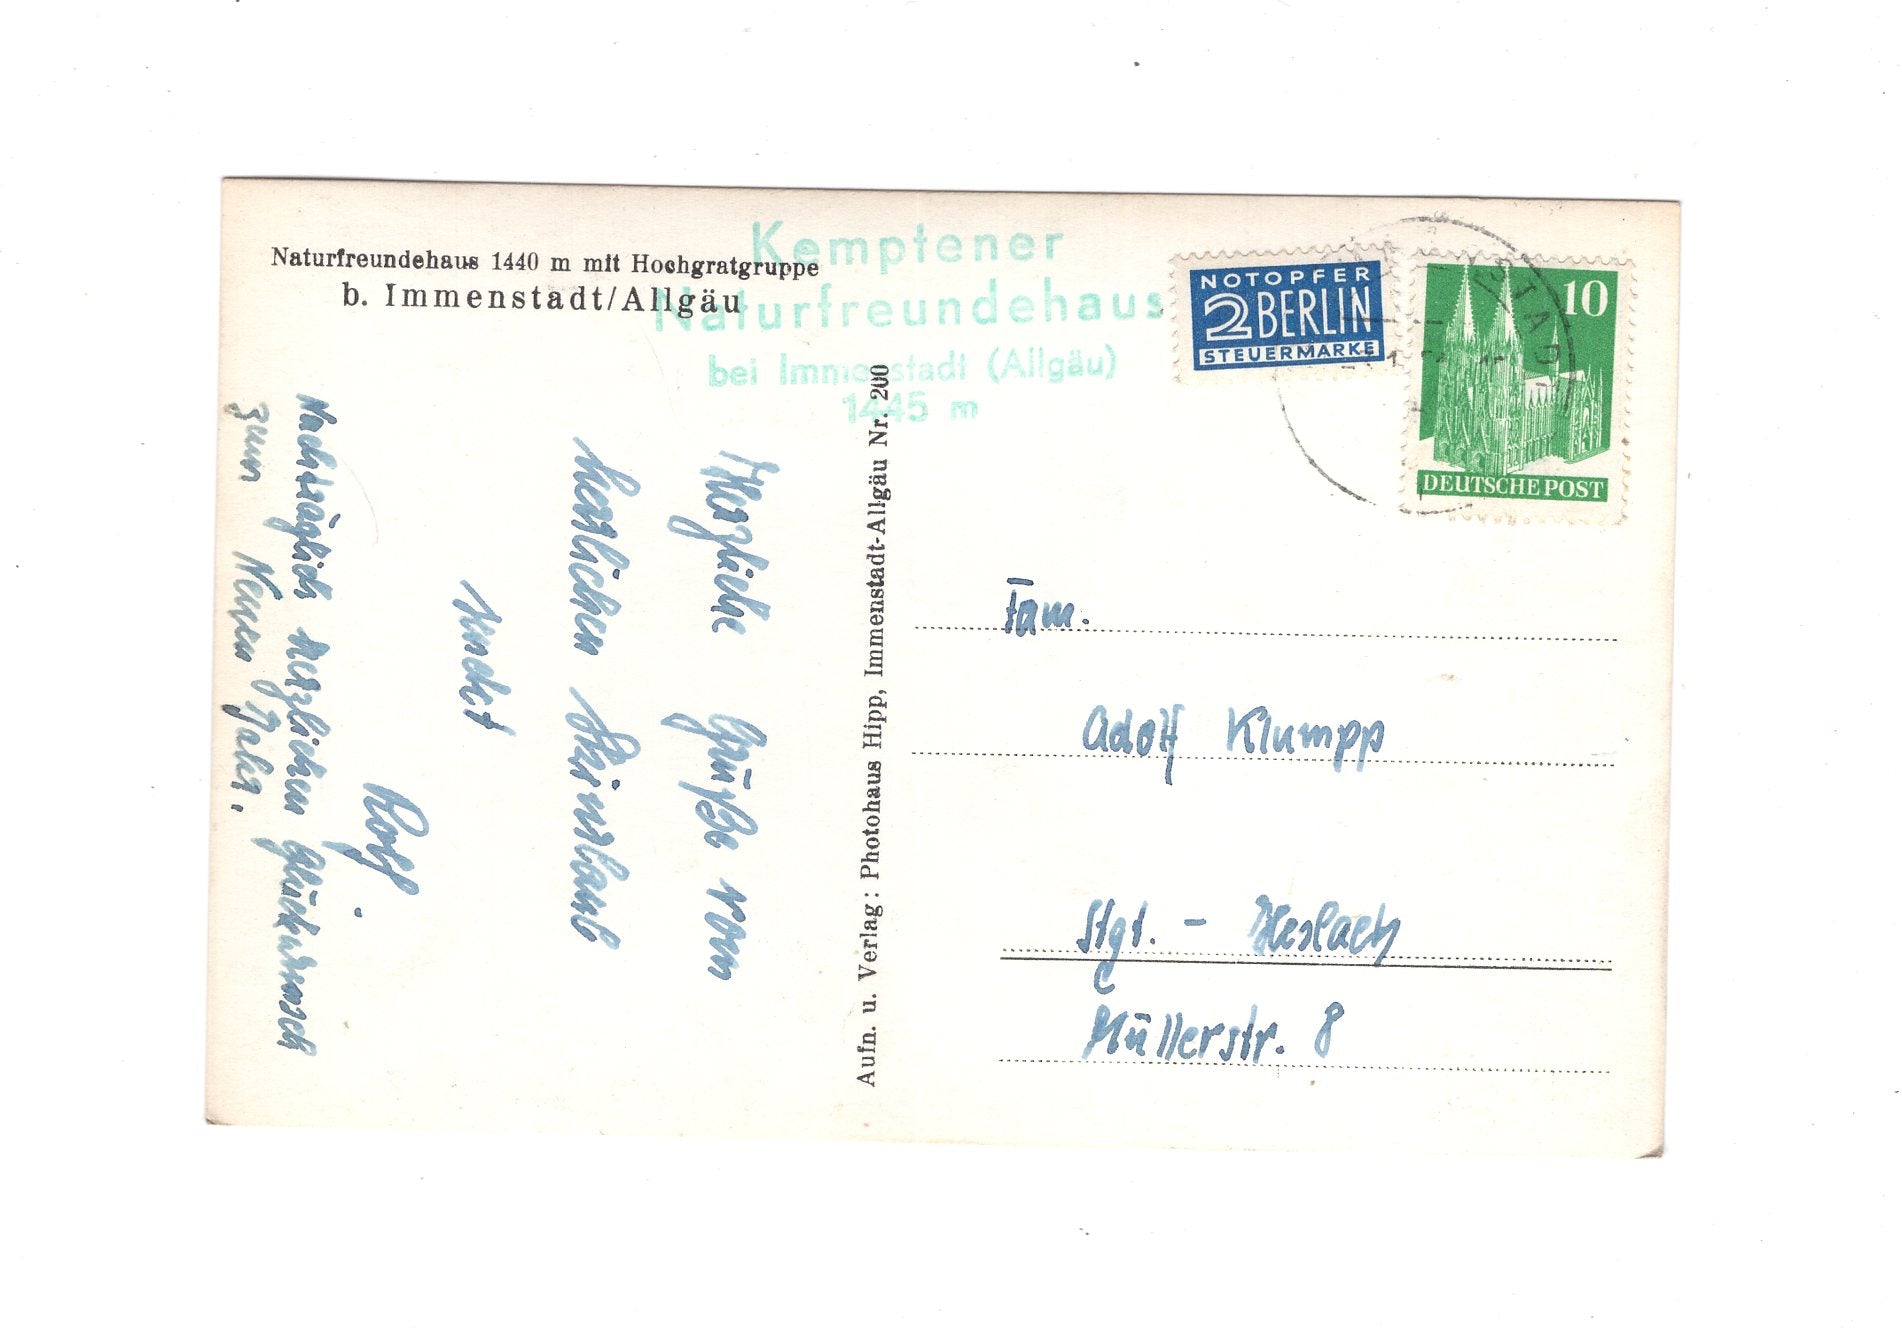 Naturfreundehaus 1440 m mit Hochgratgruppe
b. Immenstadt/Allgäu
Kemptener
Naturfreundehaus
bei Immenstadt (Allgäu)
1445 m
NOTOPFER
2 BERLIN
STEUERMARKE
10
DEUTSCHE POST
STAD
Aufn. u. Verlag: Photohaus Hipp, Immenstadt-Allgäu Nr. 200
Herzliche Grüße vom
herrlichen Skiurlaub
sendet
Rolf.
Nachträglich herzlichen Glückwunsch
zum Neuen Jahr.
Fam.
Adolf Klumpp
Stgt. - Heslach
Müllerstr. 8